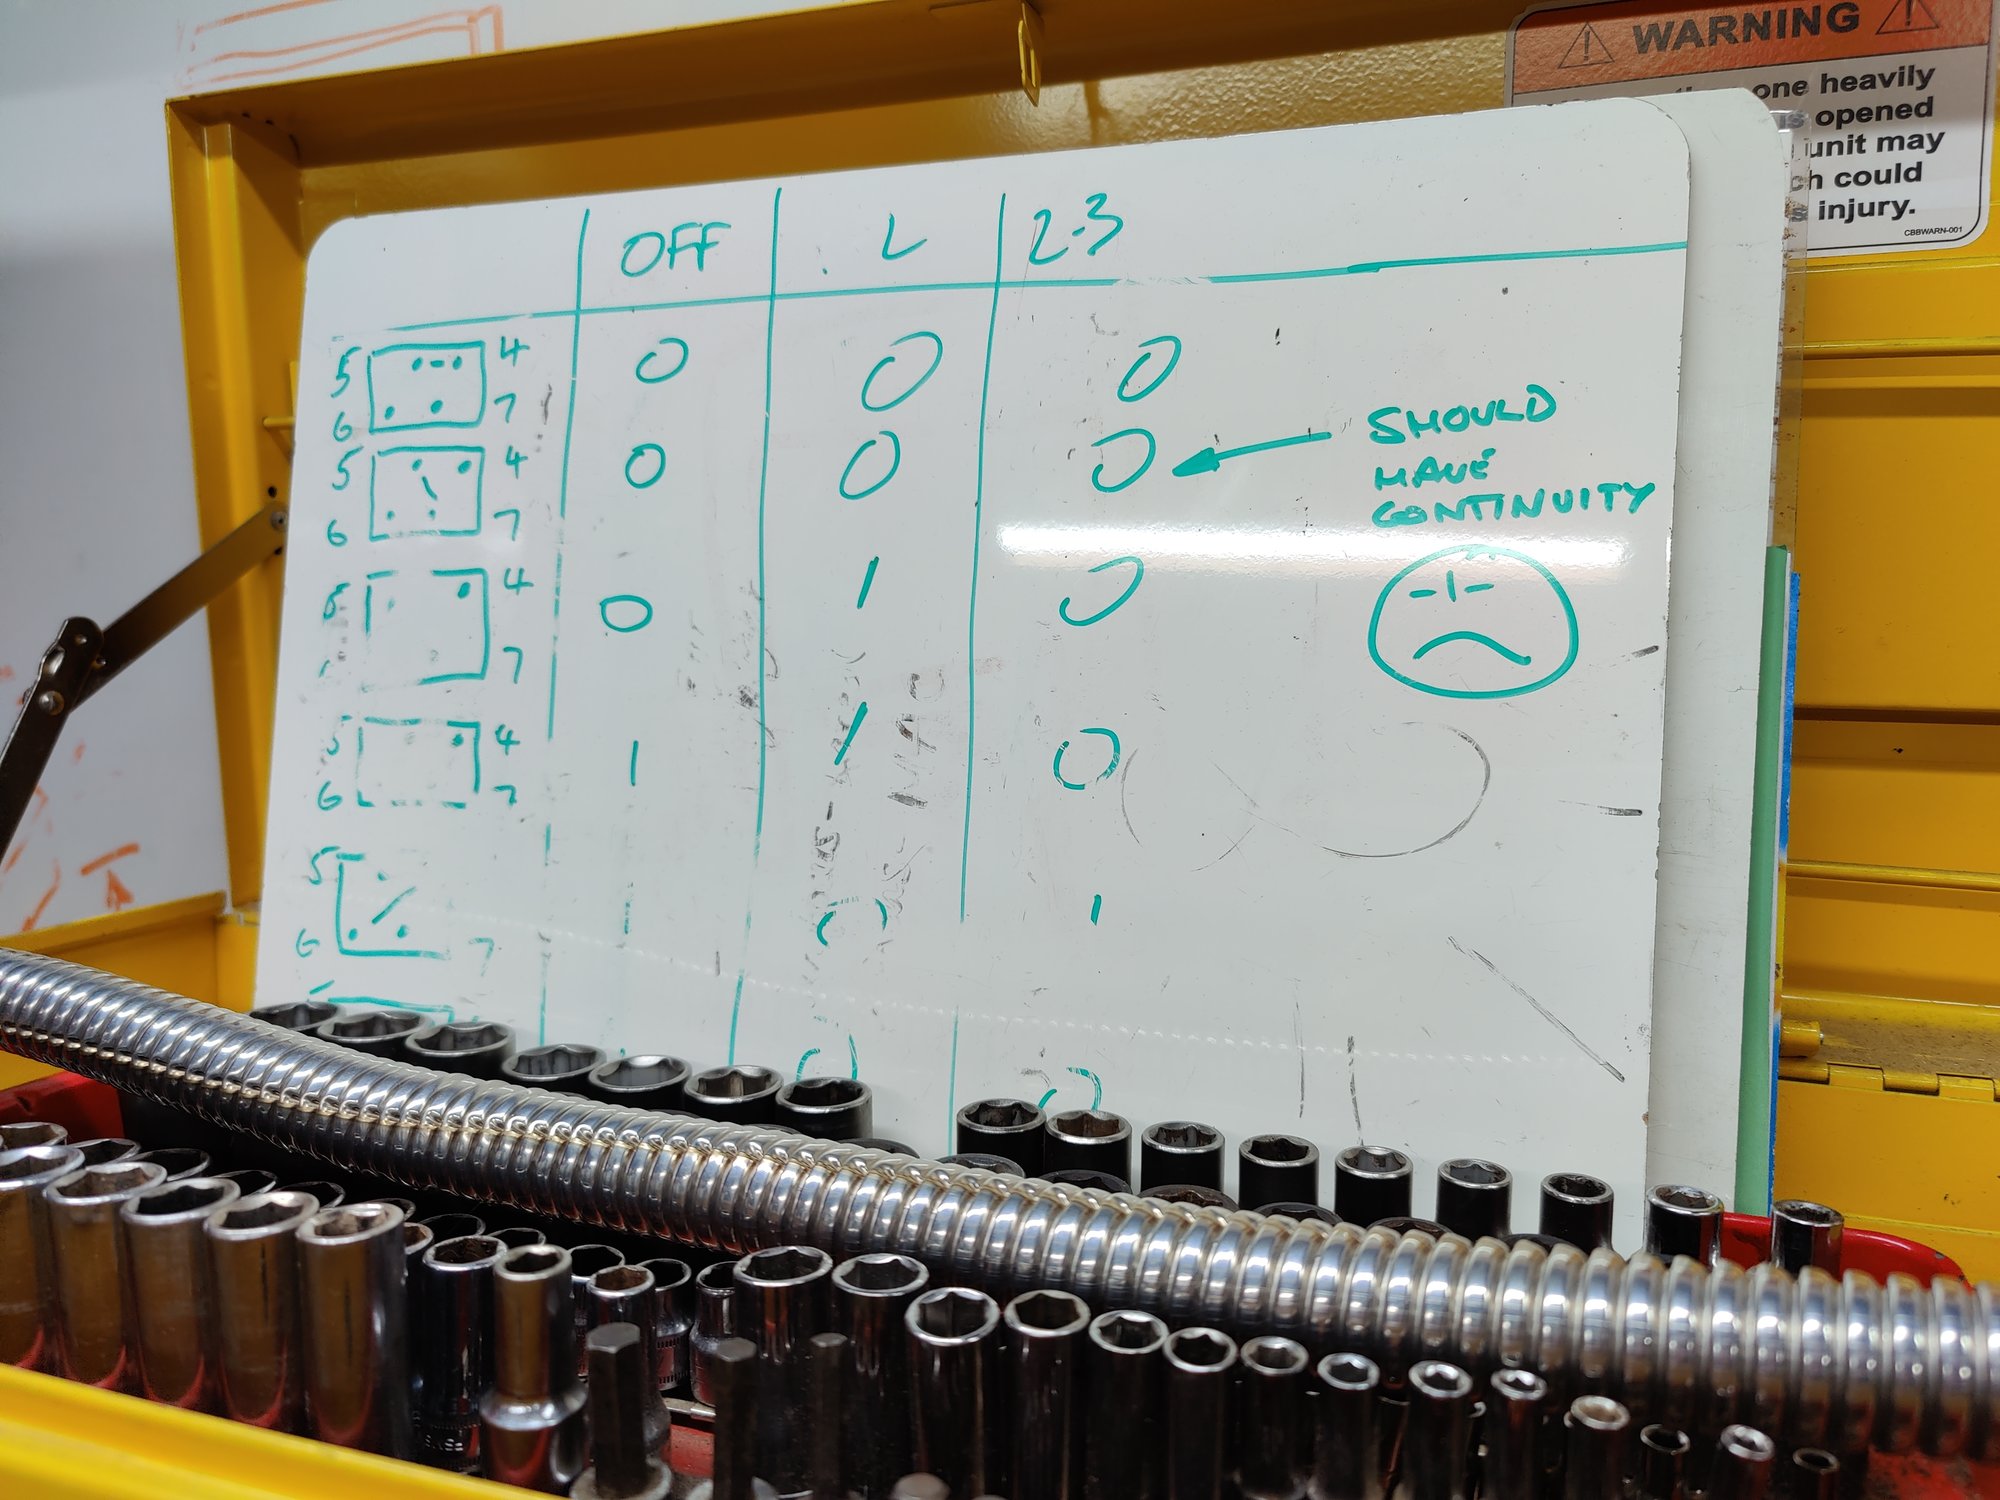 WARNING
one heavily
is opened
unit may
ch could
s injury.
CBBWARN-001
OFF L 2-3
5 4 0 0 0
6 7
5 4 0 0 0
6 7
SHOULD
HAVE
CONTINUITY
5 4 0 1 0
7
5 4 1 1 0
6 7
5 1 0 1
6 7